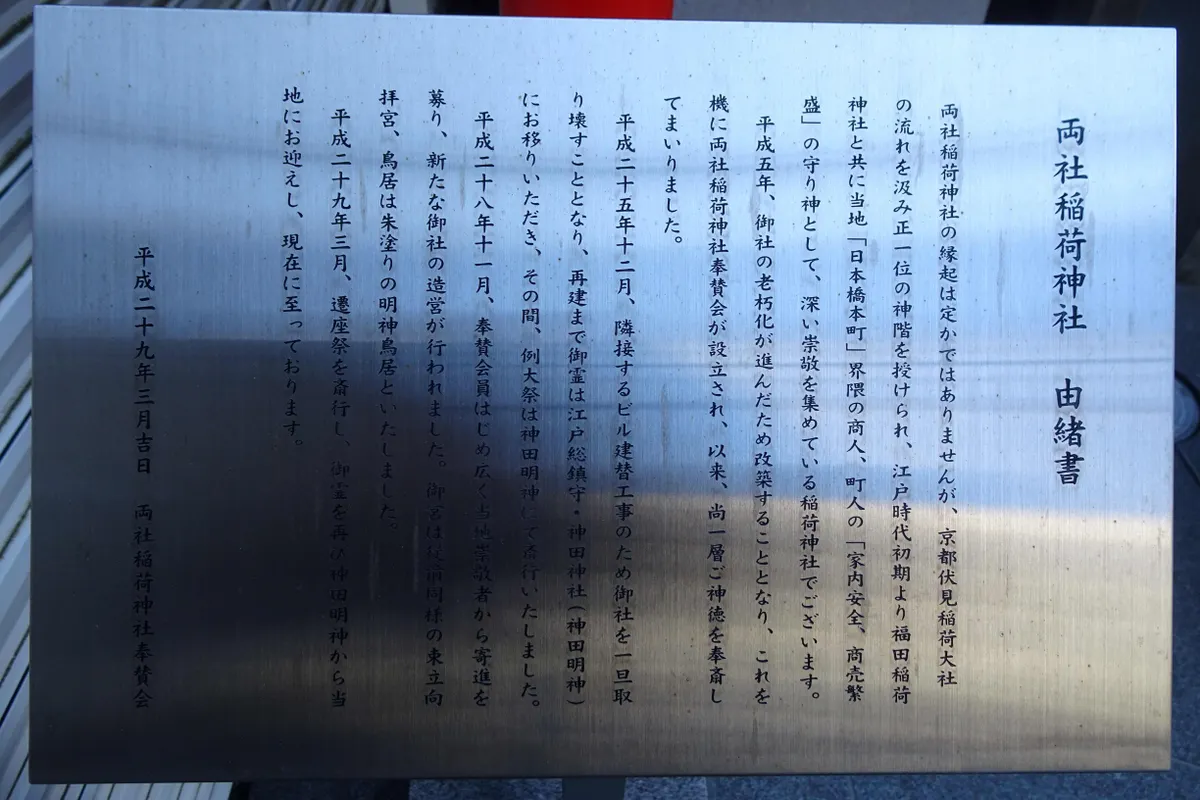 両社稲荷神社　由緒書
両社稲荷神社の縁起は定かではありませんが、京都伏見稲荷大社
の流れを汲み正一位の神階を授けられ、江戸時代初期より福田稲荷
神社と共に当地「日本橋本町」界隈の商人、町人の「家内安全、商売繁
盛」の守り神として、深い崇敬を集めている稲荷神社でございます。
平成五年、御社の老朽化が進んだため改築することとなり、これを
機に両社稲荷神社奉賛会が設立され、以来、尚一層ご神徳を奉斎し
てまいりました。
平成二十五年十二月、隣接するビル建替工事のため御社を一旦取
り壊すこととなり、再建まで御霊は江戸総鎮守・神田神社(神田明神)
にお移りいただき、その間、例大祭は神田明神にて斎行いたしました。
平成二十八年十一月、奉賛会員はじめ広く当地崇敬者から寄進を
募り、新たな御社の造営が行われました。御宮は従前同様の東立向
拝宮、鳥居は朱塗りの明神鳥居といたしました。
平成二十九年三月、遷座祭を斎行し、御霊を再び神田明神から当
地にお迎えし、現在に至っております。
平成二十九年三月吉日　両社稲荷神社奉賛会